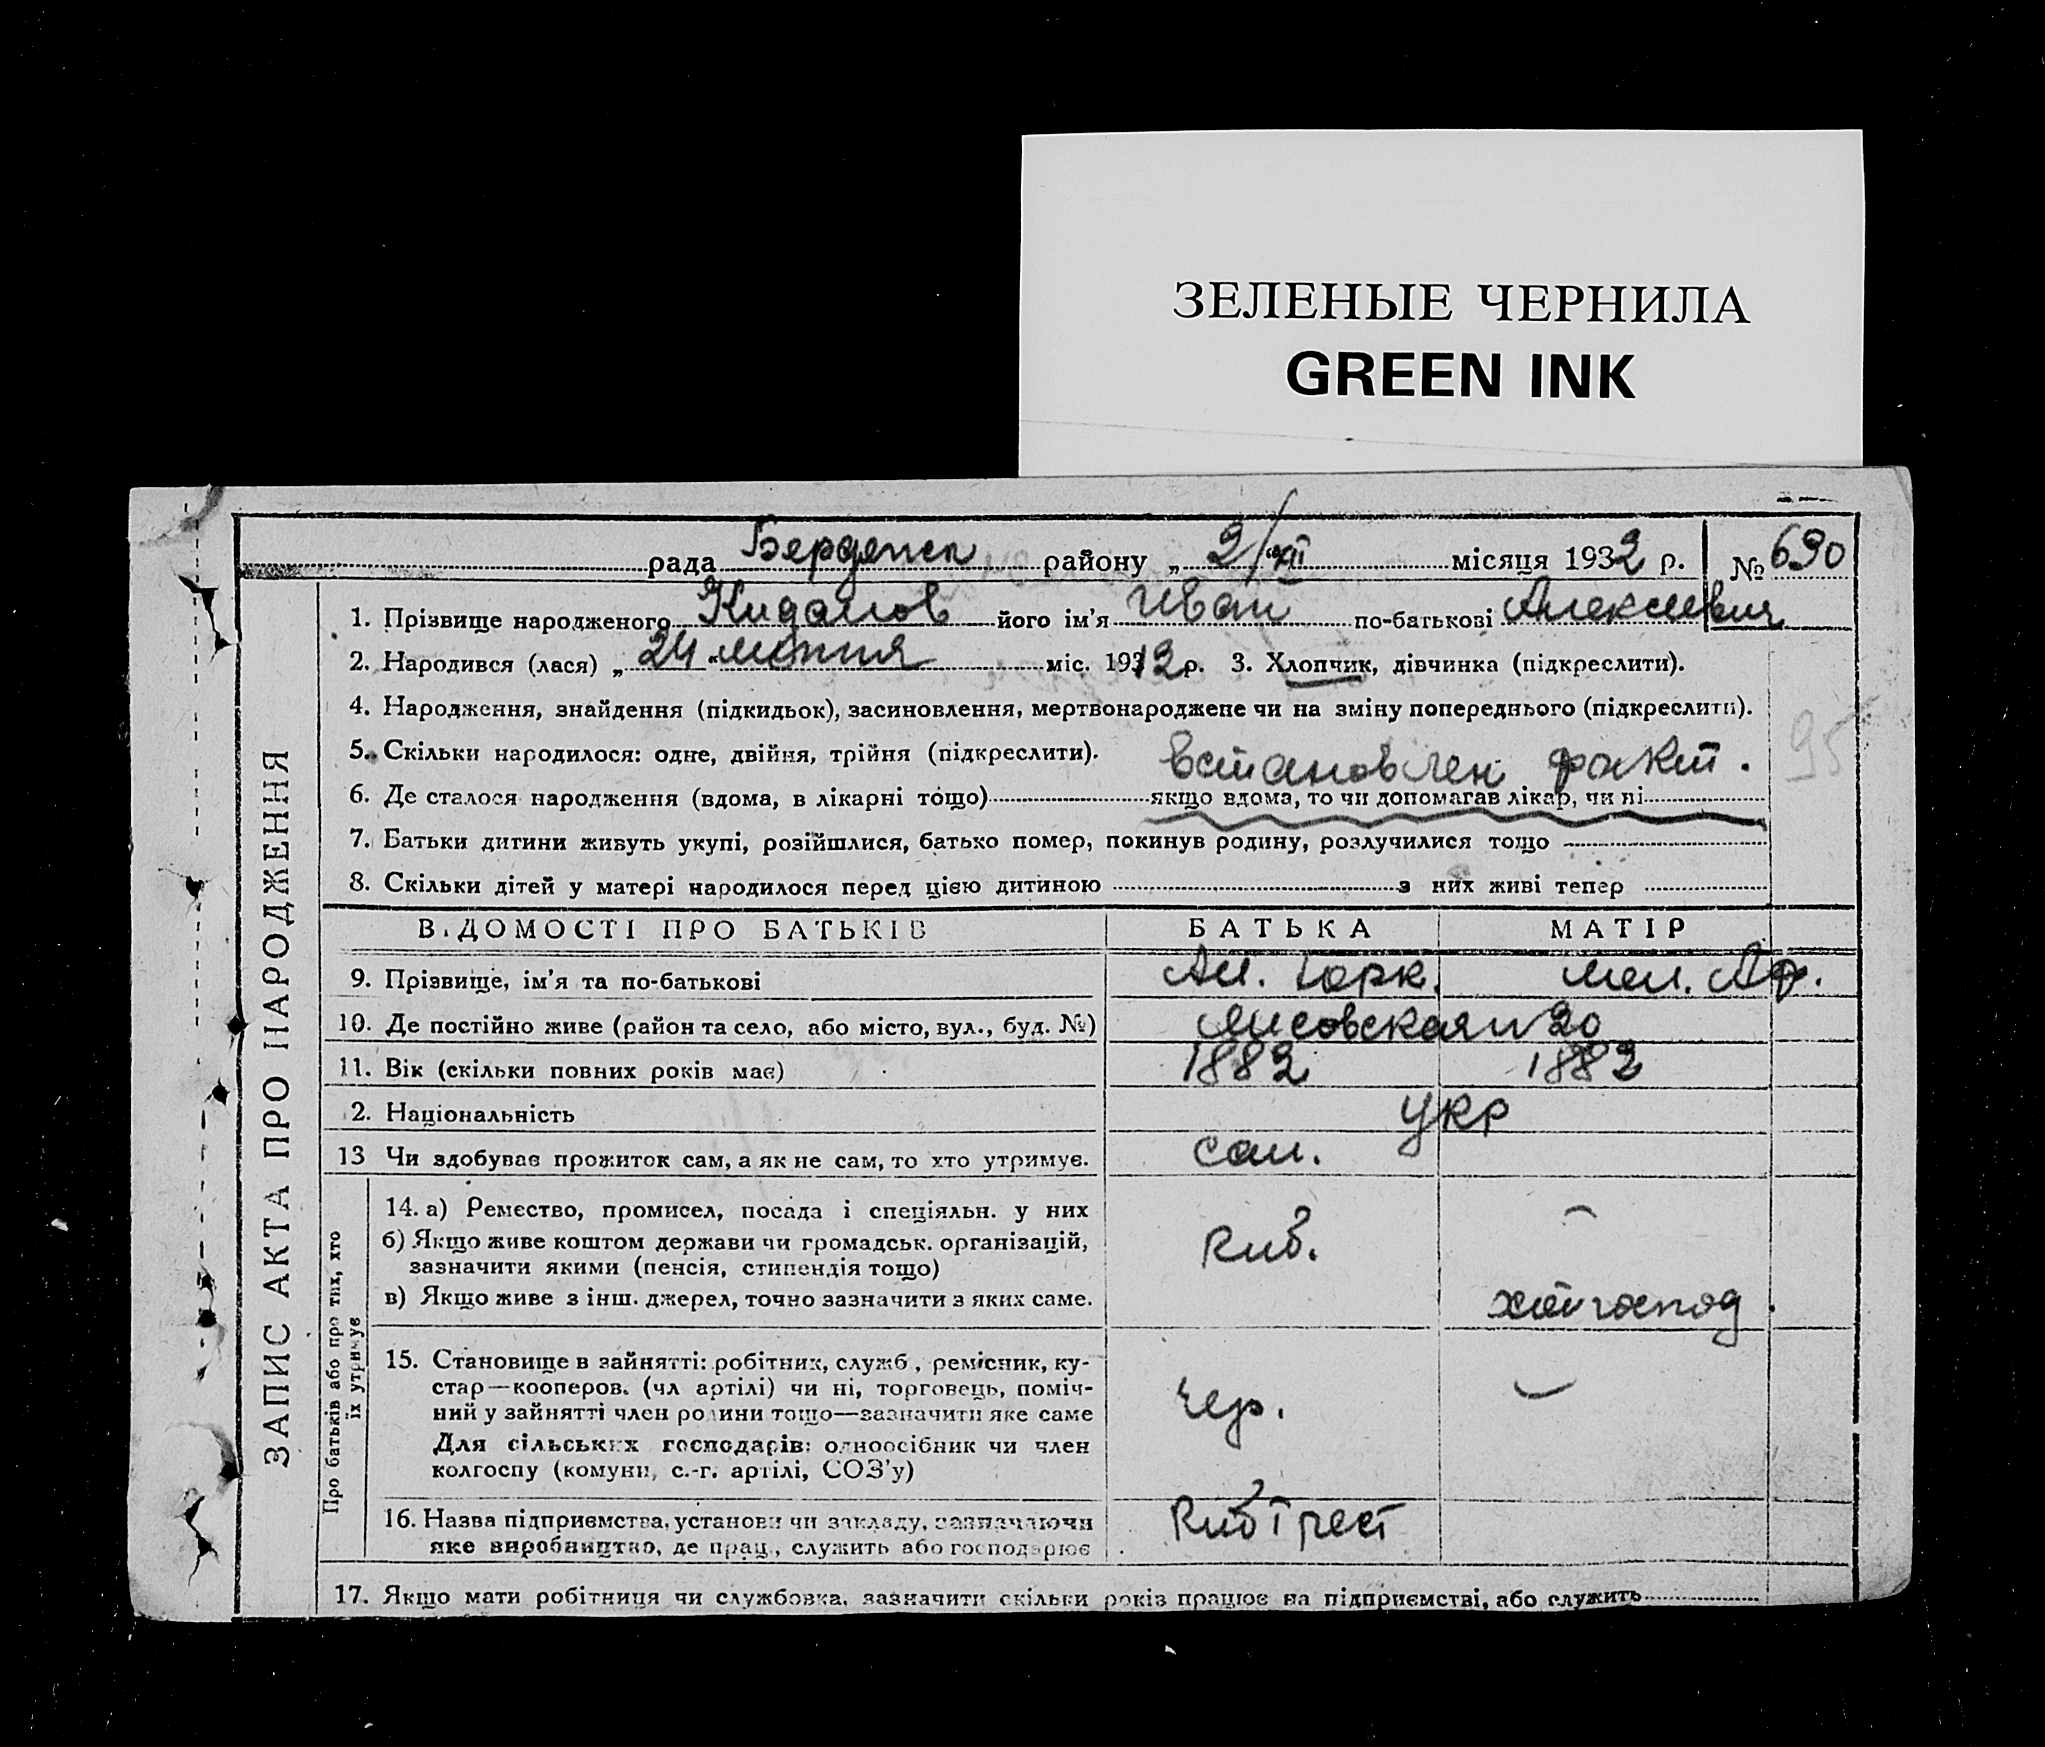 ЗЕЛЕНЫЕ ЧЕРНИЛА
GREEN INK
рада Бердянск району „ 2/XII місяця 1932 р. № 690
1. Прізвище народженого Кидалов його ім’я Иван по-батькові Алексеевич
2. Народився (лася) „ 24 “ міс. 1912 р. 3. Хлопчик, дівчинка (підкреслити).
4. Народження, знайдення (підкидьок), засиновлення, мертвонароджене чи на зміну попереднього (підкреслити).
5. Скільки народилося: одне, двійня, трійня (підкреслити). встановлен факт. 95
6. Де сталося народження (вдома, в лікарні тощо) якщо вдома, то чи допомагав лікар, чи ні
7. Батьки дитини живуть укупі, розійшлися, батько помер, покинув родину, розлучилися тощо
8. Скільки дітей у матері народилося перед цією дитиною з них живі тепер
ЗАПИС АКТА ПРО НАРОДЖЕННЯ
В.ДОМОСТІ ПРО БАТЬКІВ БАТЬКА МАТІР
9. Прізвище, ім’я та по-батькові
10. Де постійно живе (район та село, або місто, вул., буд. №) 20
11. Вік (скільки повних років має) 1882 1882
2. Національність укр
13 Чи здобуває прожиток сам, а як не сам, то хто утримує. сам.
Про батьків або про тих, хто
їх утримує
14. а) Ремество, промисел, посада і спеціяльн. у них
б) Якщо живе коштом держави чи громадськ. організацій, Риб.
зазначити якими (пенсія, стипендія тощо)
в) Якщо живе з інш. джерел, точно зазначити з яких саме.
15. Становище в зайнятті: робітник, служб., ремісник, ку-
стар—кооперов. (чл артілі) чи ні, торговець, поміч-
ний у зайнятті член родини тощо—зазначити яке саме
Для сільських господарів: одноосібник чи член
колгоспу (комуни, с.-г. артілі, СОЗ’у)
16. Назва підприємства, установи чи закладу, зазначаючи РибТрест
яке виробництво, де прац., служить або господарює
17. Якщо мати робітниця чи службовка, зазначити скільки років працює на підприємстві, або служить